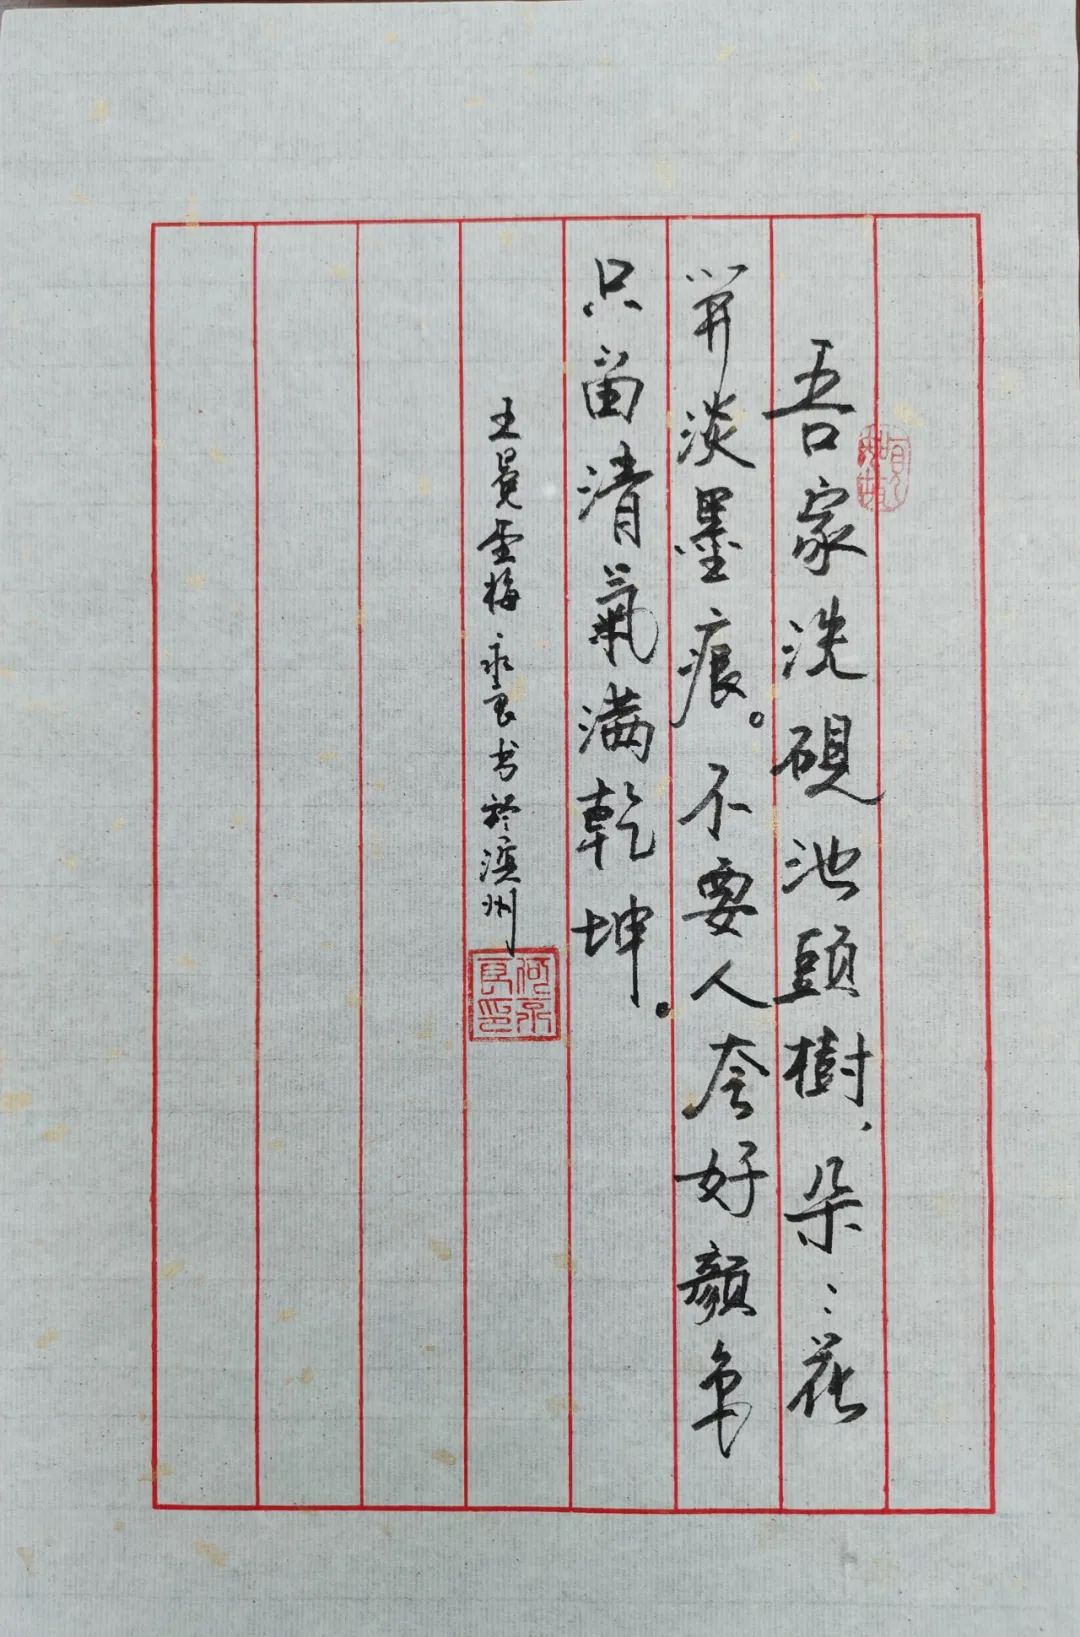 吾家洗硯池頭樹，朵々花
開淡墨痕。不要人夸好顏色
只留清氣满乾坤。
王冕墨梅 永良书於滨州
何永良印